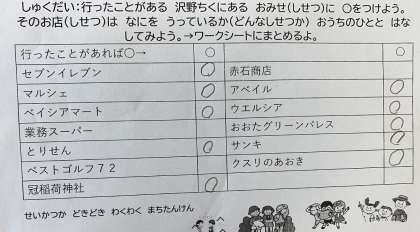 しゅくだい：行ったことがある 沢野ちくにある おみせ(しせつ)に ○をつけよう。
そのお店(しせつ)は なにを うっているか(どんなしせつか) おうちのひとと はなしてみよう。→ワークシートにまとめるよ。
行ったことがあれば○→ ○
セブンイレブン ○ 赤石商店
マルシェ ○ アベイル ○
ベイシアマート ○ ウエルシア ○
業務スーパー おおたグリーンパレス ○
とりせん ○ サンキ ○
ベストゴルフ７２ クスリのあおき ○
冠稲荷神社 ○
せいかつか どきどき わくわく まちたんけん